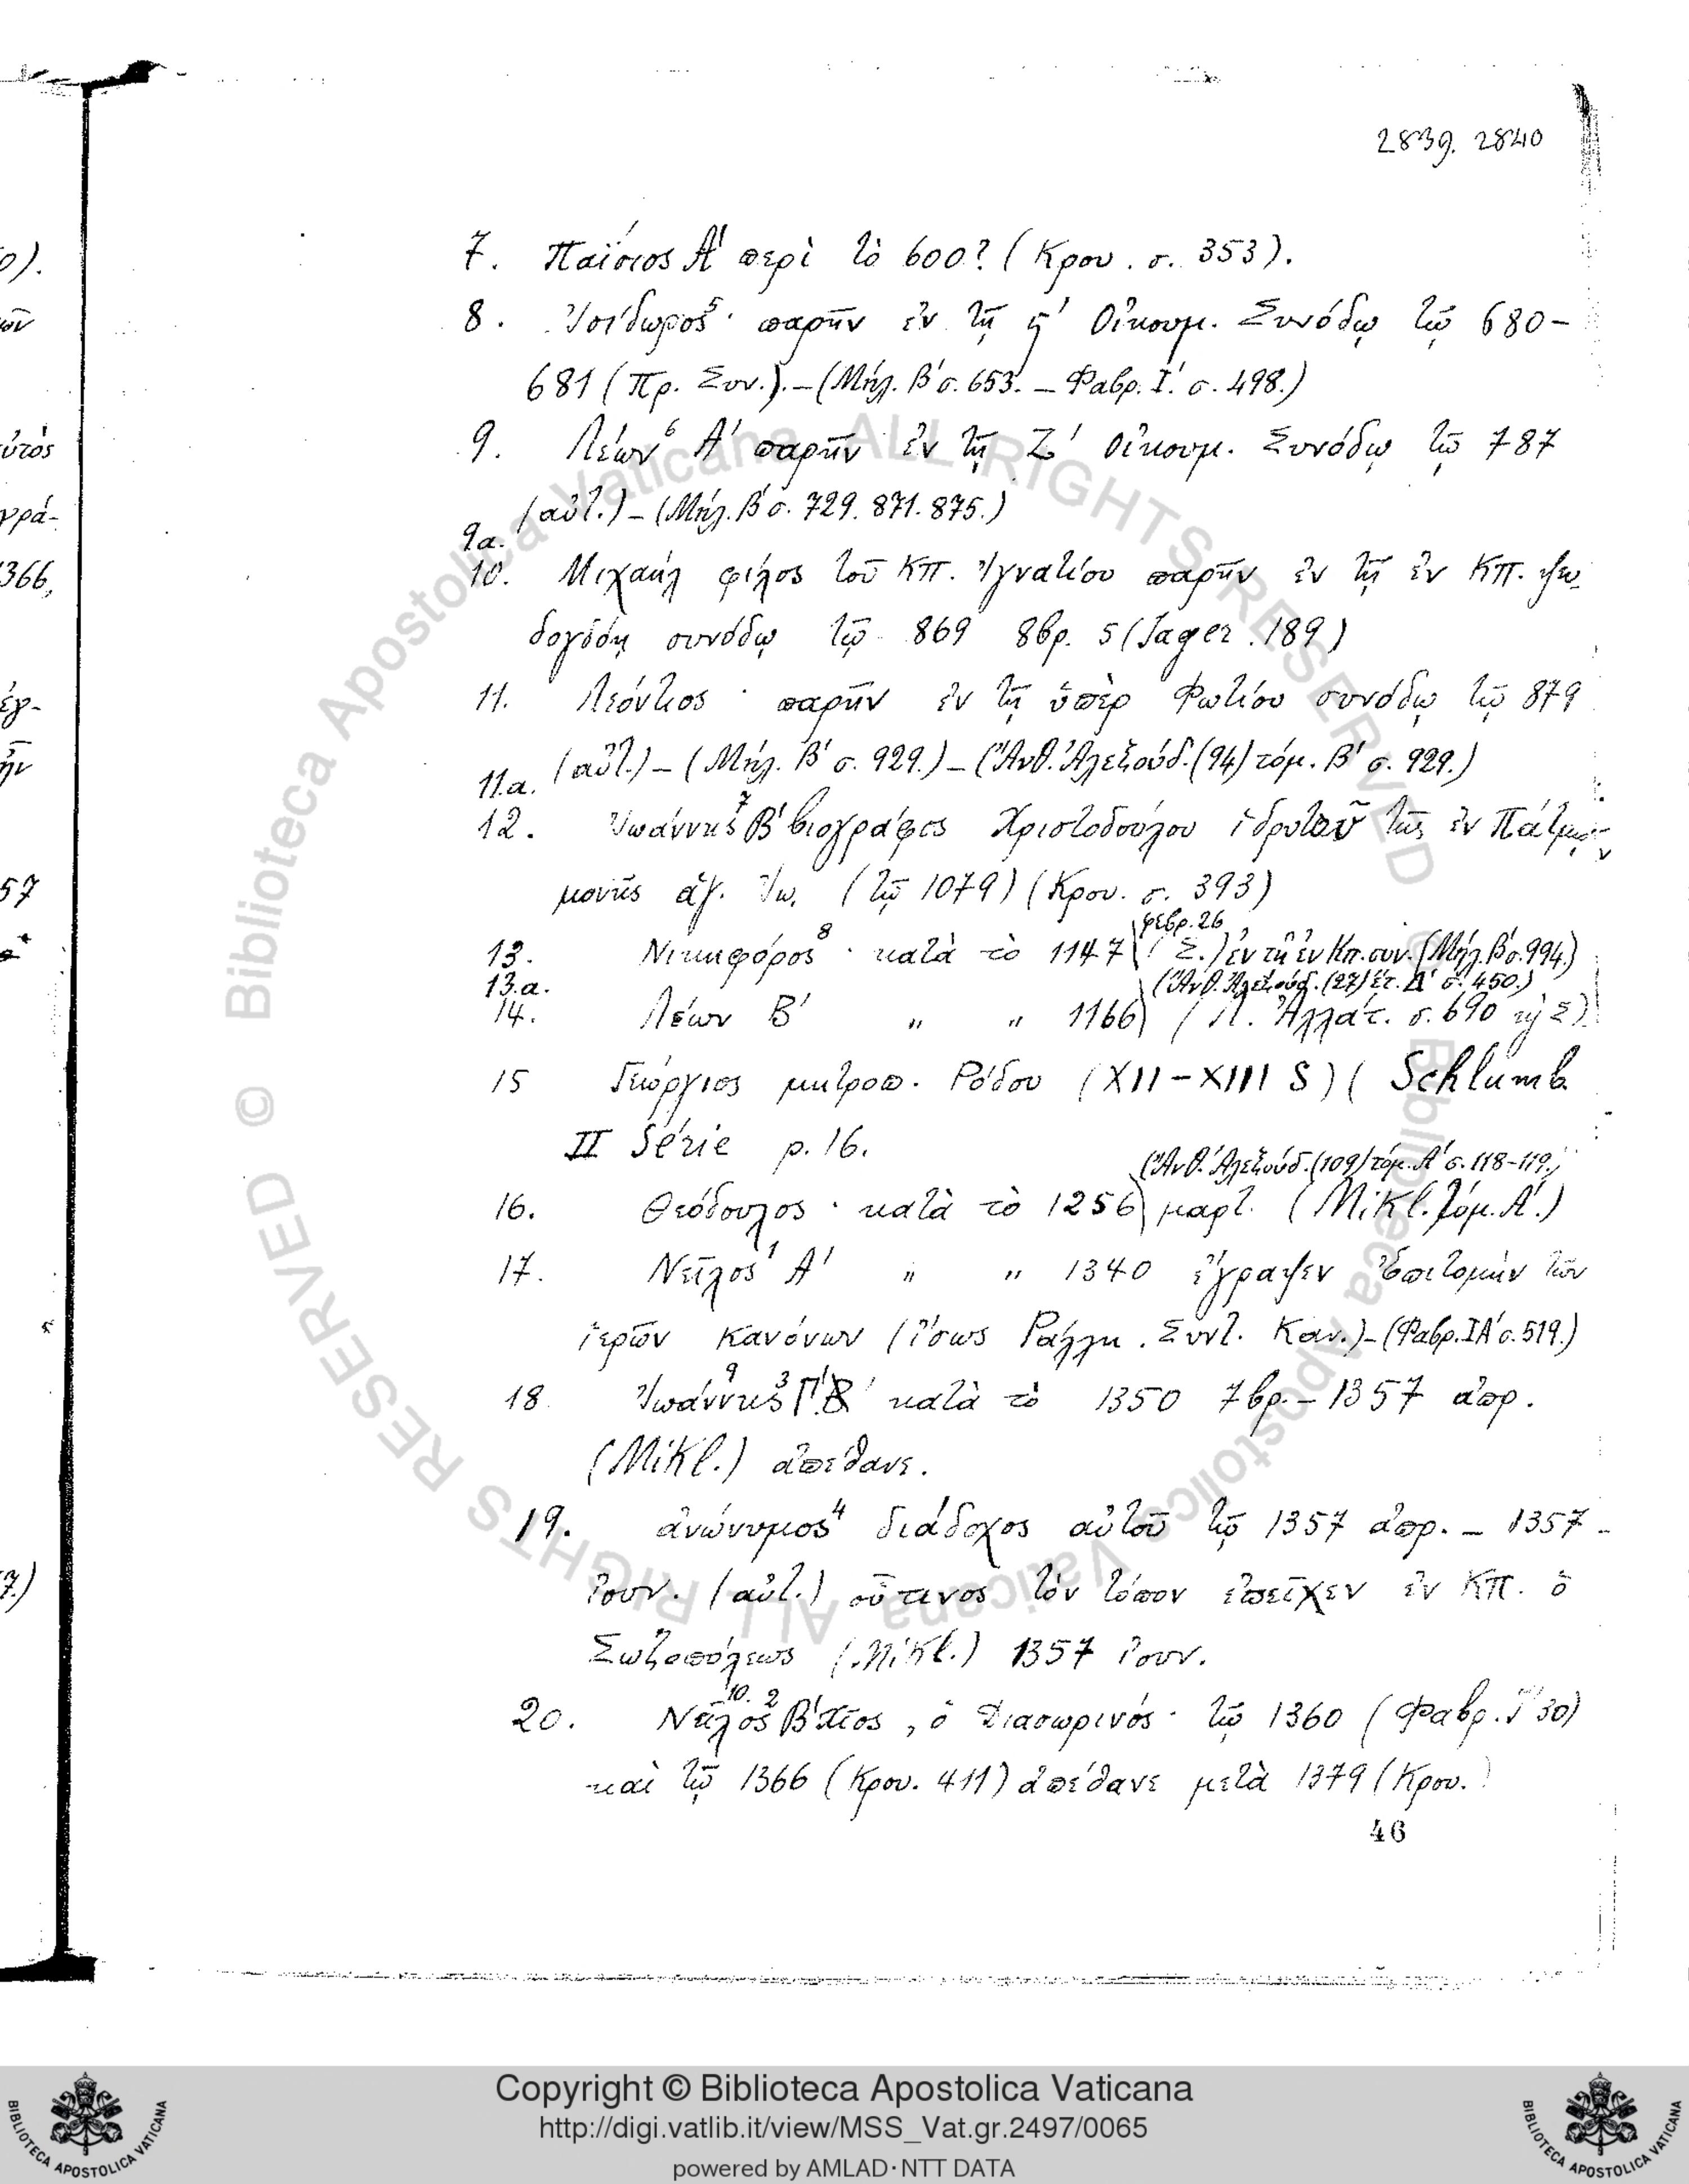 2839. 2840
7. Παΐσιος Α' περὶ τὸ 600? (Κρου. σ. 353).
8. Ἰσίδωρος⁵· παρῆν ἐν τῇ ϛ' Οἰκουμ. Συνόδῳ τῷ 680-
681 (Πρ. Συν.). – (Μήλ. Β' σ. 653. – Φαβρ. Ι'. σ. 498.)
9. Λέων⁶ Α' παρῆν ἐν τῇ Ζ' Οἰκουμ. Συνόδῳ τῷ 787
(αὐτ.) – (Μήλ. Β' σ. 729. 871. 875.)
9α.
10. Μιχαὴλ φίλος τοῦ ΚΠ. Ἰγνατίου παρῆν ἐν τῇ ἐν ΚΠ. ψευ-
δογδόῃ συνόδῳ τῷ 869 8βρ. 5 (Jager. 189)
11. Λεόντιος· παρῆν ἐν τῇ ὑπὲρ Φωτίου συνόδῳ τῷ 879
(αὐτ.) – (Μήλ. Β' σ. 929.) – (Ἄνθ. Ἀλεξούδ. (94) τόμ. Β' σ. 929.)
11.α.
12. Ἰωάννης⁷ Β' βιογράφος Χριστοδούλου ἱδρυτοῦ τῆς ἐν Πάτμῳ
μονῆς ἁγ. Ἰω. (τῷ 1079) (Κρου. σ. 393)
φεβρ. 26
13. Νικηφόρος⁸· κατὰ τὸ 1147 (Σ.) ἐν τῇ ἐν Κπ. συν. (Μήλ. Β' σ. 994.)
13.α. (Ἄνθ. Ἀλεξούδ. (27) ἔτ. Δ' σ. 450.)
14. Λέων Β' " " 1166 (Λ. Ἀλλάτ. σ. 690 Σ)
15 Γεώργιος μητροπ. Ρόδου (XII-XIII S) (Schlumb.
II Série p. 16.
(Ἄνθ. Ἀλεξούδ. (109) τόμ. Α' σ. 118-119.)
16. Θεόδουλος· κατὰ τὸ 1256 μαρτ. (Mikl. τόμ. Α'.)
17. Νεῖλος¹ Α' " " 1340 ἔγραψεν Ἐπιτομὴν τῶν
ἱερῶν κανόνων (ἴσως Ράλλη. Συντ. Καν.) – (Φαβρ. ΙΑ' σ. 519.)
18 Ἰωάννης⁹ ³ Γ' Β' κατὰ τὸ 1350 7βρ. – 1357 ἀπρ.
(Mikl.) ἀπέθανε.
19. ἀνώνυμος⁴ διάδοχος αὐτοῦ τῷ 1357 ἀπρ. – 1357 –
ἰουν. (αὐτ.) οὗτινος τὸν τόπον ἐπεῖχεν ἐν ΚΠ. ὁ
Σωζοπόλεως (Mikl.) 1357 ἰουν.
20. Νεῖλος¹⁰·² Β' Χῖος, ὁ Διασωρινός· τῷ 1360 (Φαβρ. 30)
καὶ τῷ 1366 (Κρου. 411) ἀπέθανε μετὰ 1379 (Κρου.)
46
0).
ῶν
αὐτὸς
γρά-
366,
57
7.)
© Biblioteca Apostolica Vaticana ALL RIGHTS RESERVED
© Biblioteca Apostolica Vaticana ALL RIGHTS RESERVED
Copyright © Biblioteca Apostolica Vaticana
http://digi.vatlib.it/view/MSS_Vat.gr.2497/0065
powered by AMLAD·NTT DATA
BIBLIOTECA APOSTOLICA VATICANA
BIBLIOTECA APOSTOLICA VATICANA